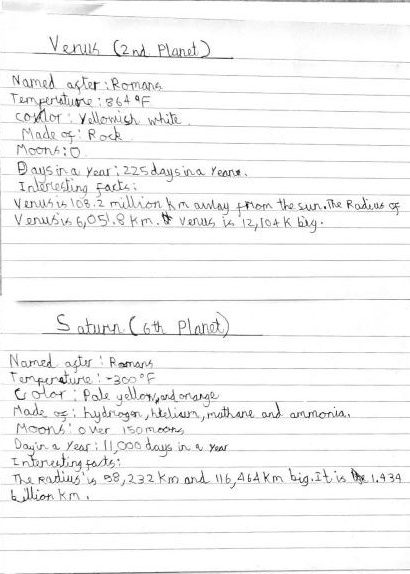 Venus (2nd Planet)
Named after : Romans
Temperature : 864°F
color : Yellowish white.
Made of : Rock
Moons : 0
Days in a year : 225 days in a Year.
Interesting facts :
Venus is 108.2 million km away from the sun. The Radius of
Venus is 6,051.8 km. Venus is 12,104 K big.
Saturn (6th Planet)
Named after : Romans
Temperature : -300°F
Color : Pale yellow, and orange
Made of : hydrogen, helium, methane and ammonia.
Moons : over 150 moons
Day in a Year : 11,000 days in a Year
Interesting facts :
The Radius is 58,232 km and 116,464 km big. It is 1.434
billion km.